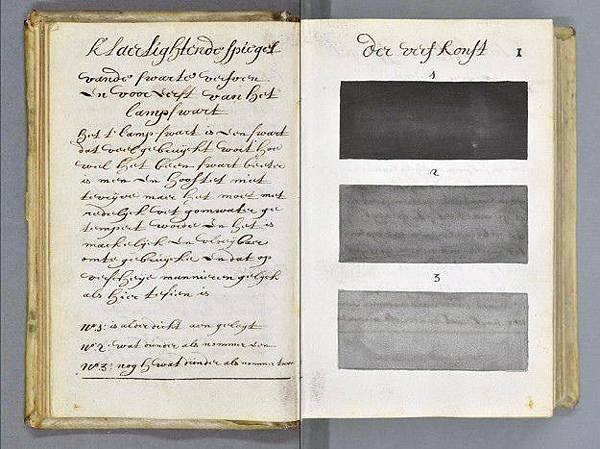 klaerlightende spiegel
vande swarte verfven
En voor Eerst van het
lampswart
Het t lampswart is Een swart
dat veel gebruyckt wort hoe
wel het been swart beeter
is men En hooftet niet
tevrijve maer het moet met
redelyck vet gomwater ge
tempert worde En het is
mackelyck En vloeybaer
omte gebruijcke En dat op
verscheije mannieren gelyck
als hier tesien is
No 1: is alder dickt aen gelegt
No 2: wat dunder als nommer Een
No 3: nog h wat dunder als nommer twee
der verf konst 1
1
2
3